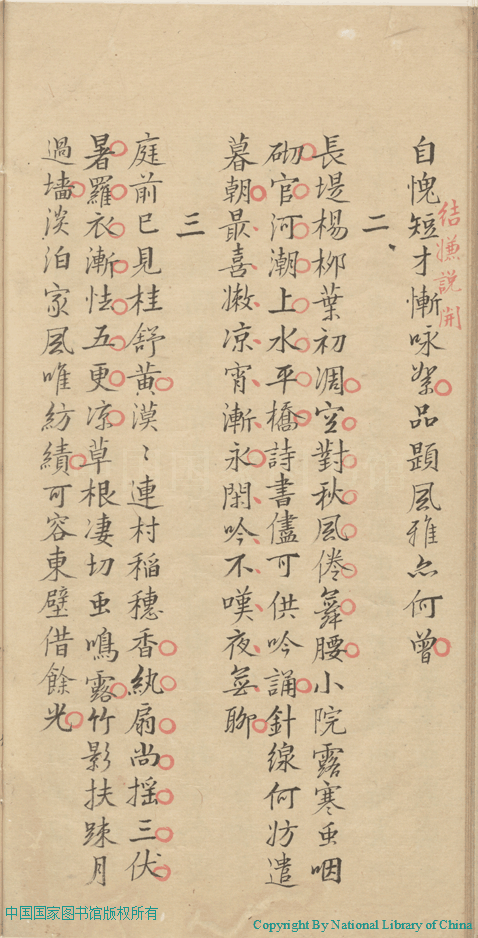 自愧短才慚咏絮品題風雅亦何曾
結嫌說開
二
長堤楊柳葉初凋空對秋風倦舞腰小院露寒虫咽
砌官河潮上水平橋詩書儘可供吟誦針線何妨遣
暮朝最喜嫩凉宵漸永閑吟不嘆夜無聊
三
庭前已見桂舒黄漠〻連村稻穗香紈扇尚揺三伏
暑羅衣漸怯五更凉草根凄切虫鳴露竹影扶踈月
過墻淡泊家風唯紡績可容東壁借餘光
中国国家图书馆版权所有
Copyright By National Library of China